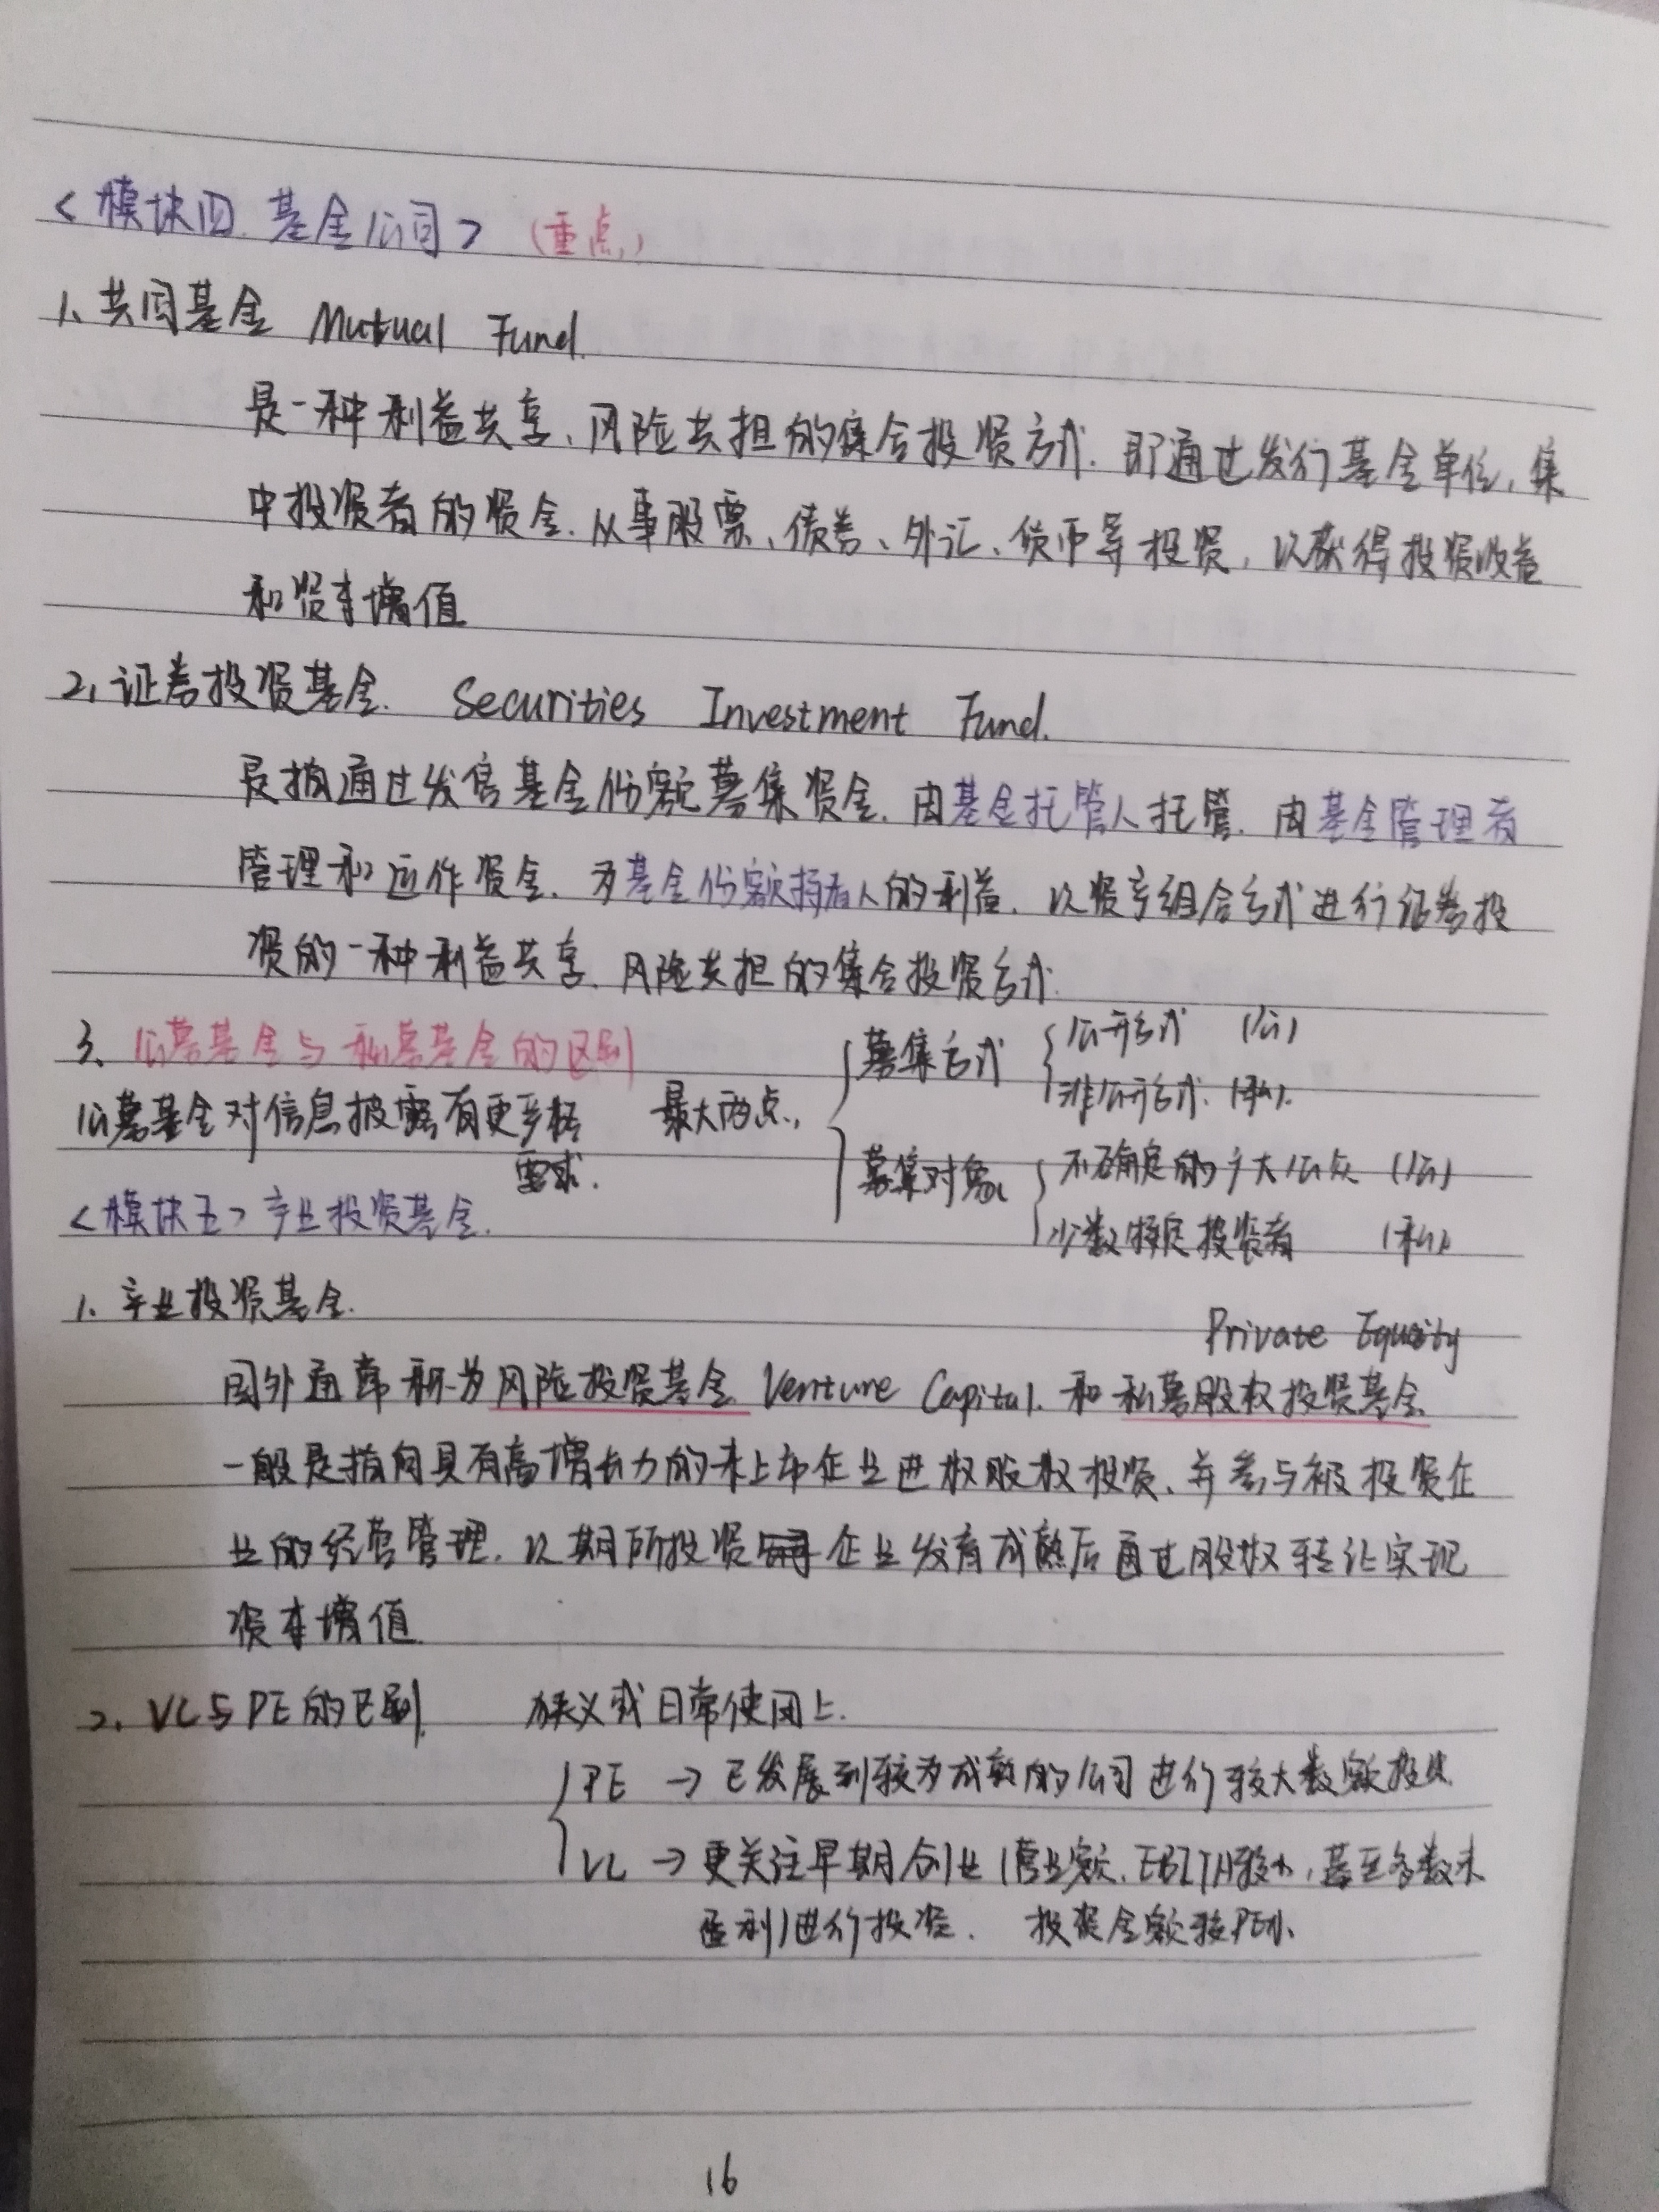 <模块四. 基金公司> (重点)
1、共同基金 Mutual Fund.
是一种利益共享、风险共担的集合投资方式. 即通过发行基金单位, 集
中投资者的资金. 从事股票、债券、外汇、货币等投资, 以获得投资收益
和资本增值
2、证券投资基金. Securities Investment Fund.
是指通过发售基金份额募集资金. 由基金托管人托管. 由基金管理者
管理和运作资金. 为基金份额持有人的利益. 以资产组合方式进行证券投
资的一种利益共享. 风险共担的集合投资方式.
3、公募基金与私募基金的区别
公募基金对信息披露有更严格
需求.
最大两点.
募集方式
公开方式 (公)
非公开方式. (私).
募集对象
不确定的广大公众 (公)
少数特定投资者 (私)
<模块五> 产业投资基金.
1. 产业投资基金.
Private Equity
国外通常称为风险投资基金 Venture Capital. 和私募股权投资基金.
一般是指向具有高增长力的未上市企业进权股权投资. 并参与被投资企
业的经营管理. 以期所投资企业发育成熟后通过股权转让实现
资本增值
2. VC与PE的区别. 狭义或日常使用上.
PE → 已发展到较为成熟的公司进行较大数额投资
VC → 更关注早期创业(营业额. EBITA较小, 甚至多数未
盈利)进行投资. 投资金额较PE小.
16